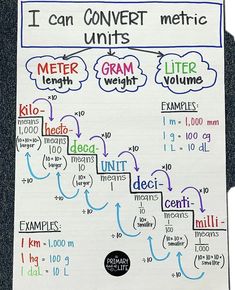 I can CONVERT metric
units
METER
length
GRAM
weight
LITER
volume
×10
kilo-
means
1,000
(10×10×10
larger)
×10
hecto-
means
100
(10×10
larger)
×10
deca-
means
10
(10
larger)
×10
UNIT
means
1
×10
deci-
means
1
10
(10
smaller)
×10
centi-
means
1
100
(10×10
smaller)
milli-
means
1
1,000
(10×10×10
smaller)
÷10
÷10
÷10
÷10
÷10
÷10
EXAMPLES:
1 m = 1,000 mm
1 g = 100 cg
1 L = 10 dL
EXAMPLES:
1 km = 1,000 m
1 hg = 100 g
1 daL = 10 L
PRIMARY
LIFE